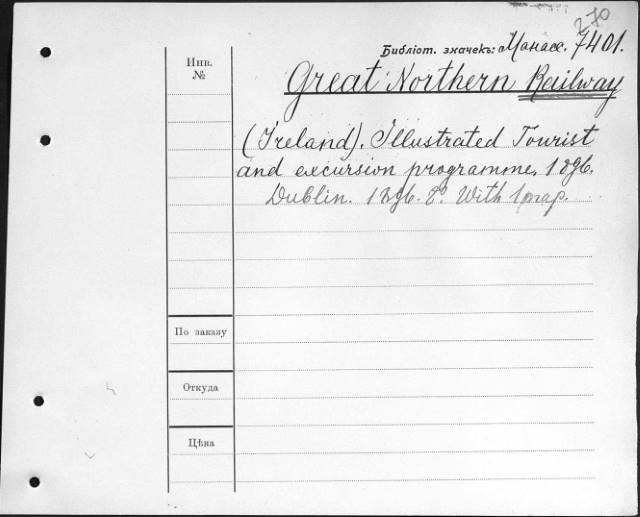 270
Библіот. значекъ: Манасс. 7401.
Инв.
№
Great Northern Railway
(Ireland). Illustrated Tourist
and excursion programme. 1896.
Dublin. 1896. 8º. With 1 map.
По заказу
Откуда
Цѣна